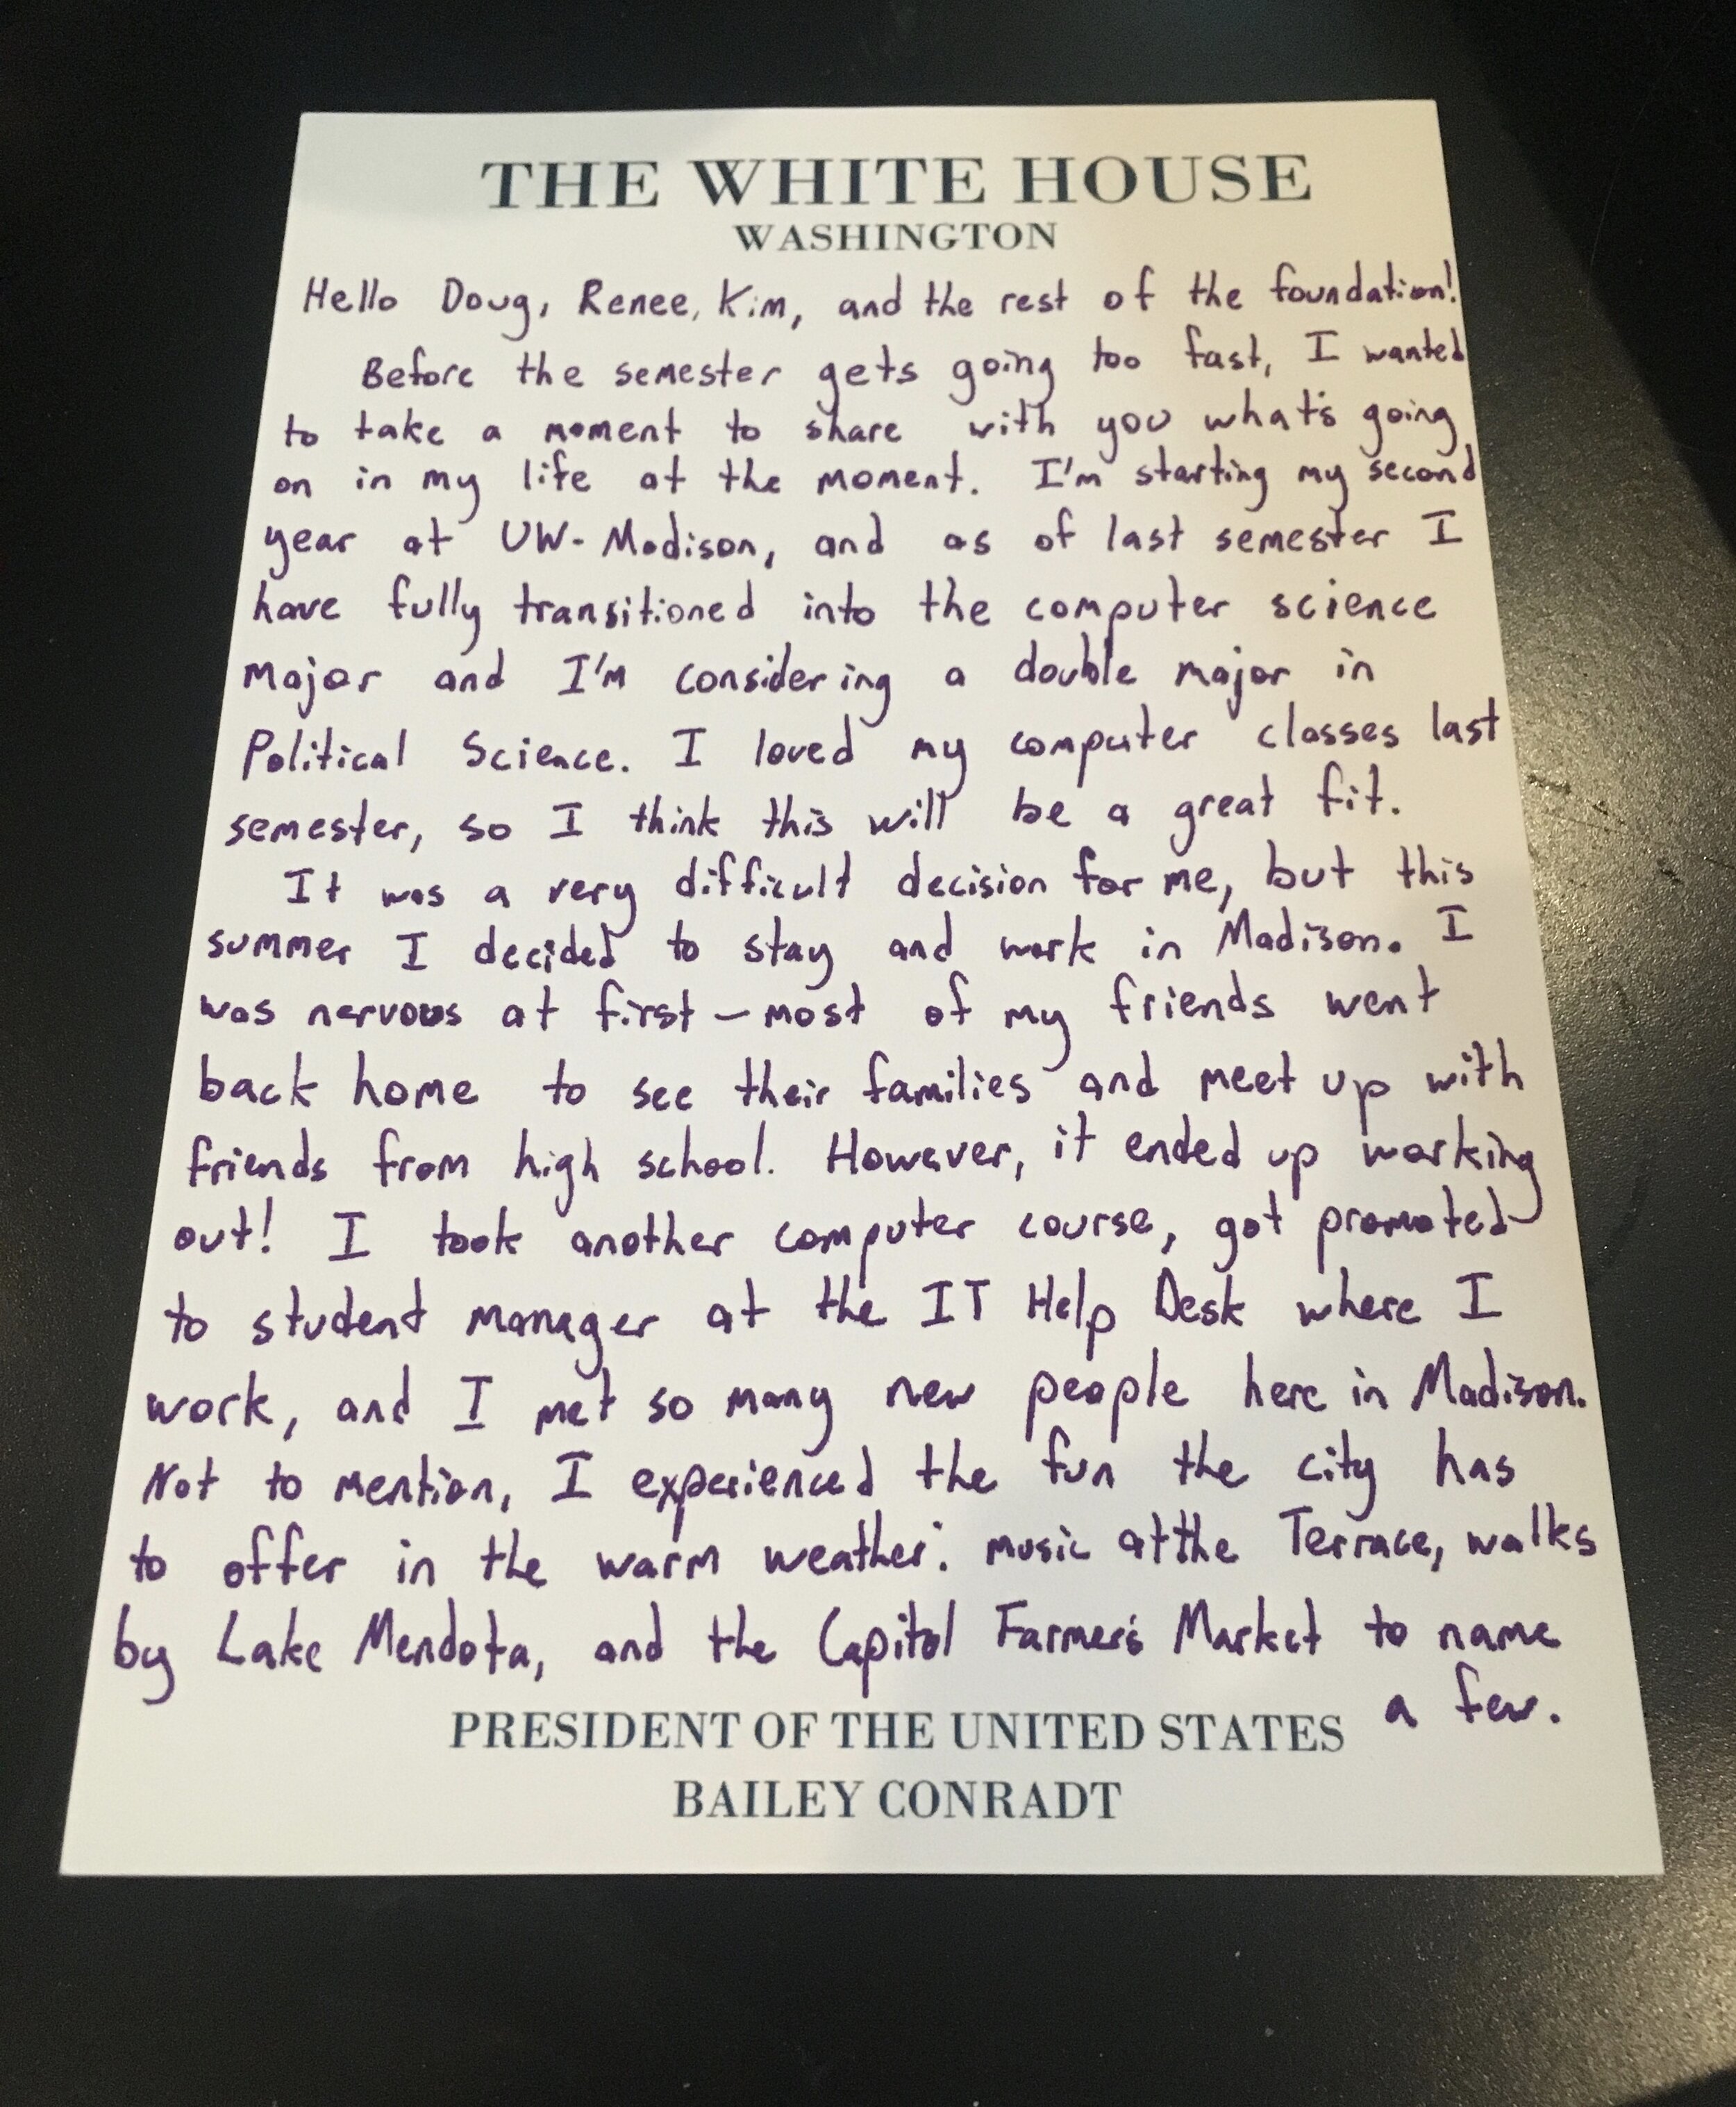 THE WHITE HOUSE
WASHINGTON
Hello Doug, Renee, Kim, and the rest of the foundation!
Before the semester gets going too fast, I wanted
to take a moment to share with you what's going
on in my life at the moment. I'm starting my second
year at UW-Madison, and as of last semester I
have fully transitioned into the computer science
major and I'm considering a double major in
Political Science. I loved my computer classes last
semester, so I think this will be a great fit.
It was a very difficult decision for me, but this
summer I decided to stay and work in Madison. I
was nervous at first - most of my friends went
back home to see their families and meet up with
friends from high school. However, it ended up working
out! I took another computer course, got promoted
to student manager at the IT Help Desk where I
work, and I met so many new people here in Madison.
Not to mention, I experienced the fun the city has
to offer in the warm weather: music at the Terrace, walks
by Lake Mendota, and the Capitol Farmer's Market to name
a few.
PRESIDENT OF THE UNITED STATES
BAILEY CONRADT